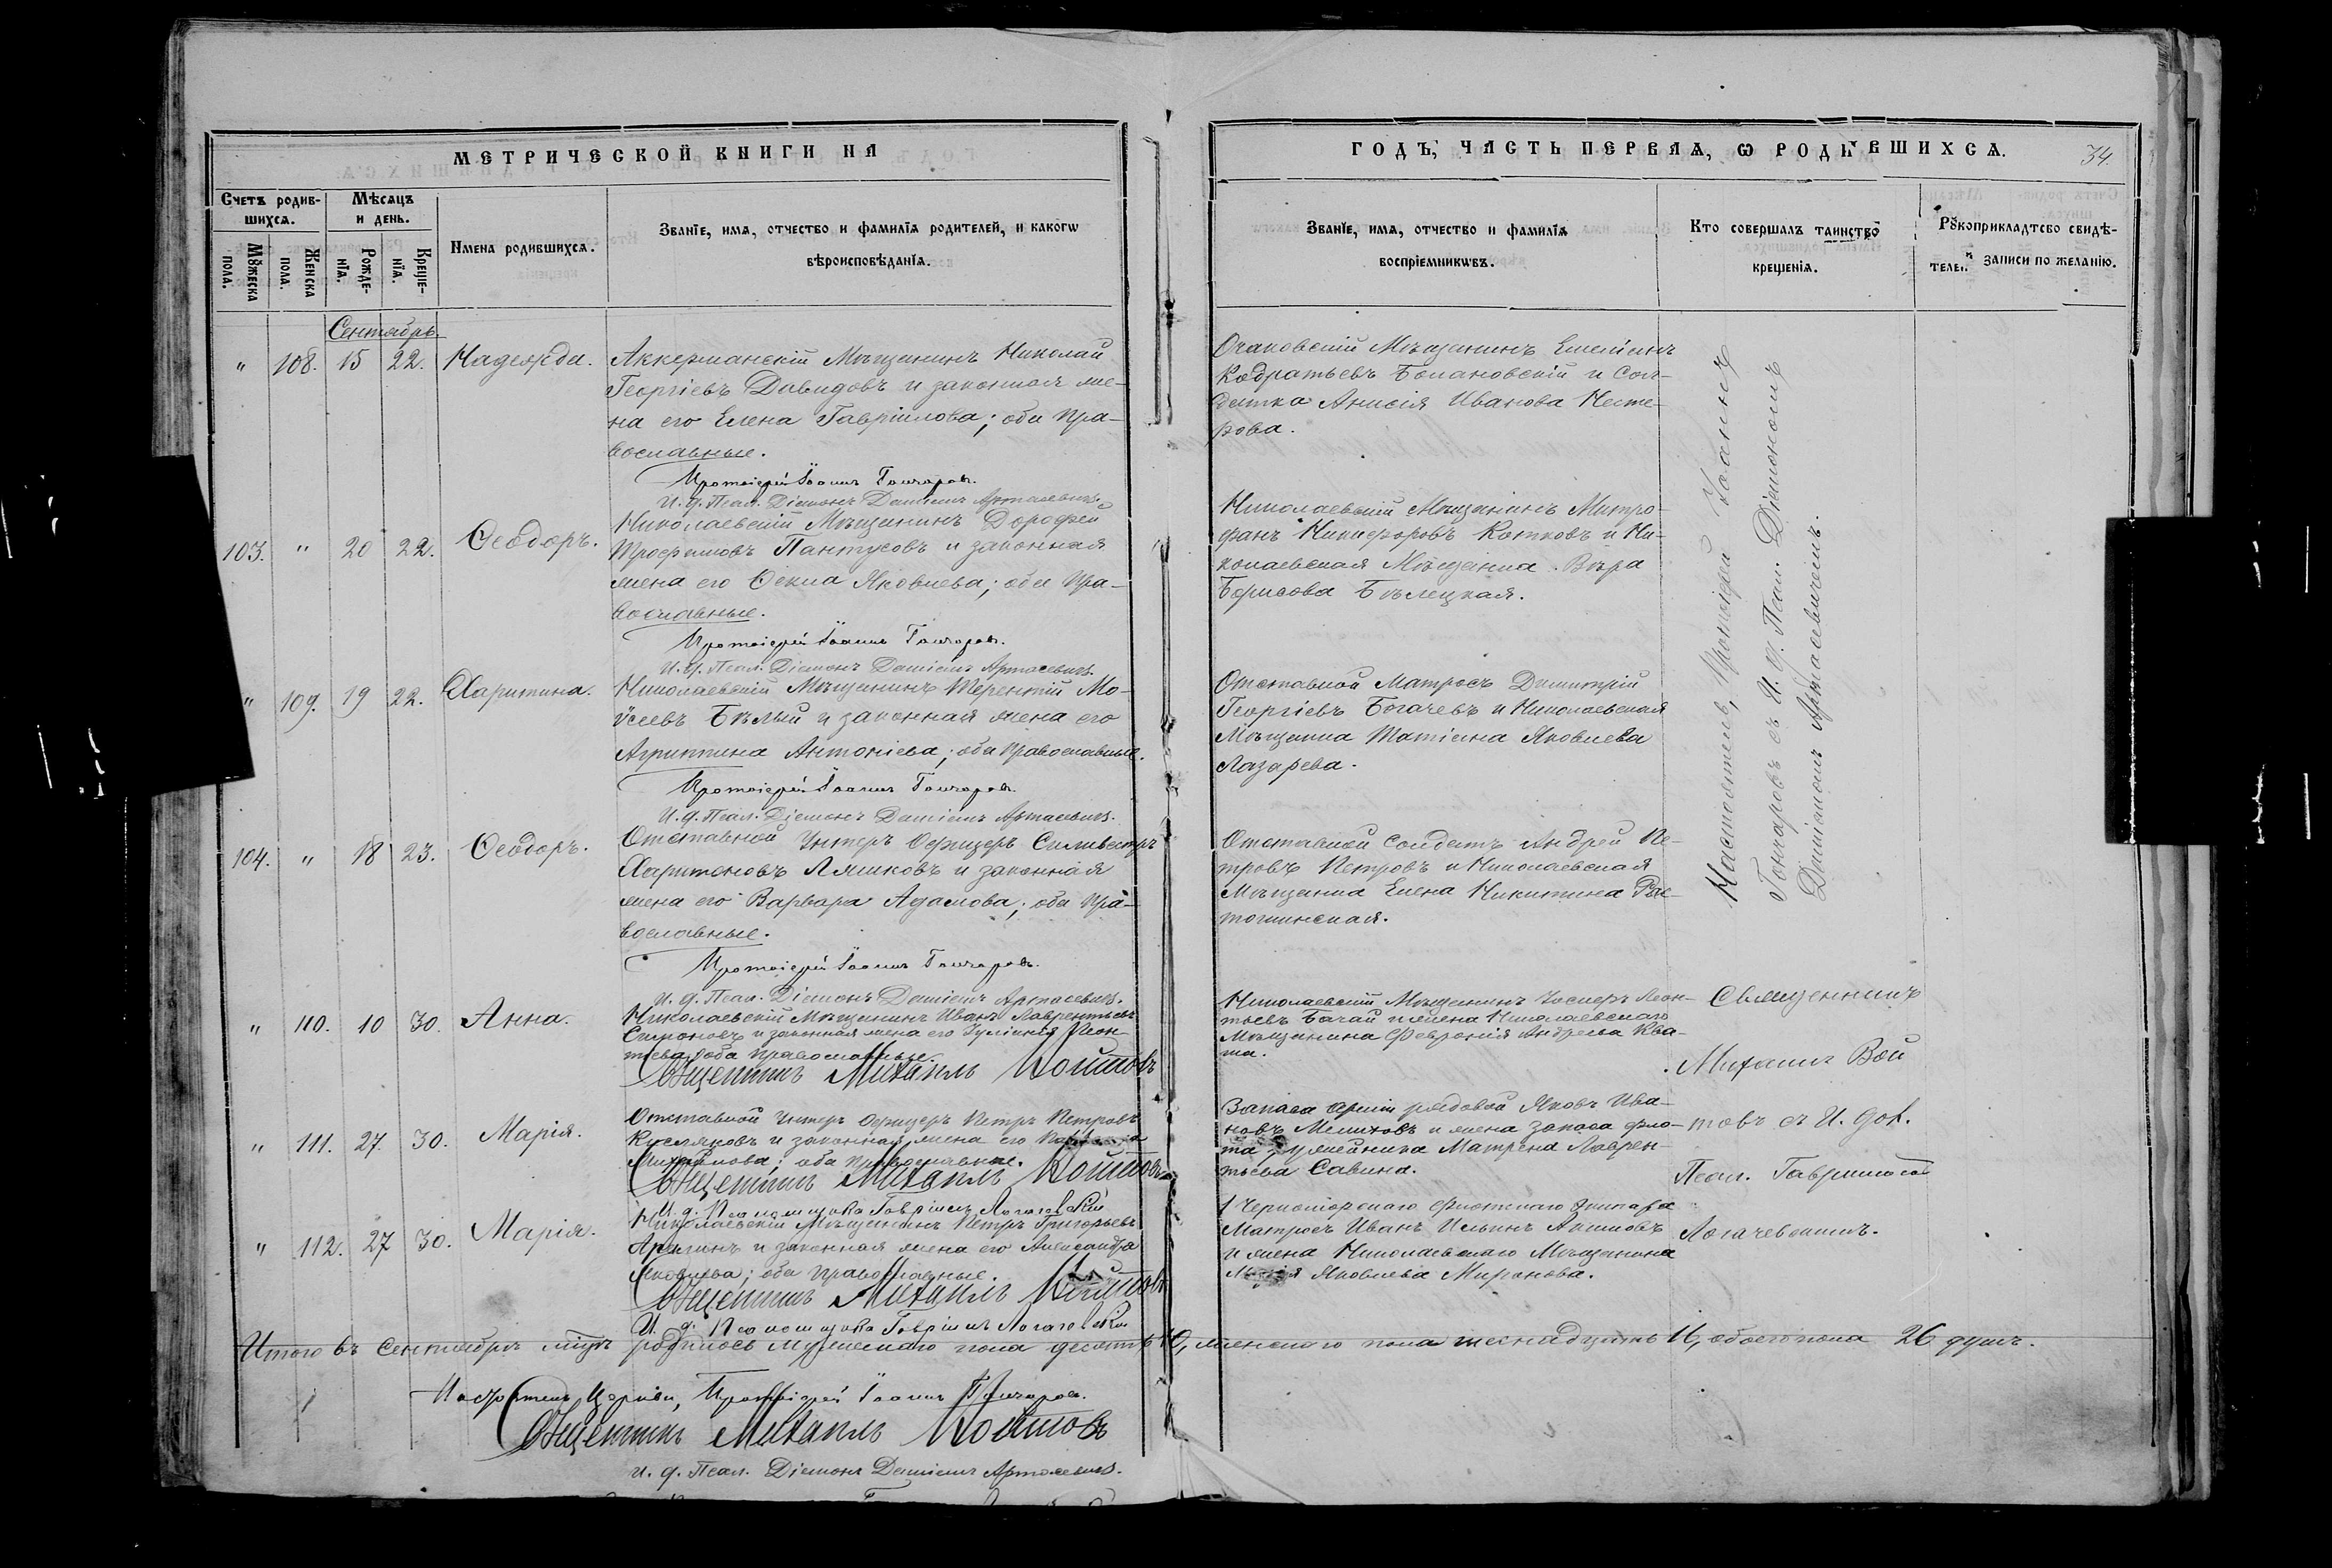 МЕТРИЧЕСКОЙ КНИГИ НА
ГОДЪ, ЧАСТЬ ПЕРВАЯ, Ѡ РОДИВШИХСЯ.
34.
Счетъ родив-
шихся.
Мѣсяцъ
и день.
Мꙋжеска
пола.
Женска
пола.
Рожде-
нїя.
Креще-
нїя.
Имена родившихся.
Званїе, имя, отчество и фамилїя родителей, и какогѡ
вѣроисповѣданїя.
Званїе, имя, отчество и фамилїя
воспрїемникѡвъ.
Кто совершалъ таинство
крещенїя.
Рꙋкоприкладтсво свидѣ-
телей записи по желанїю.
Сентябрь.
" 108. 15 22. Надежда.
Аккерманскій Мѣщанинъ Николай
Георгіевъ Давидовъ и законная же-
на его Елена Гавріилова; оба пра-
вославные.
Протоіерей Іоаннъ Гончаровъ.
И. д. Псал. Діаконъ Даміанъ Артасевичъ.
Очаковскій Мѣщанинъ Емеліанъ
Кодратьевъ Бомановскій и Сол-
датка Анисія Иванова Несте-
рова.
103. " 20 22. Ѳеодоръ.
Николаевскій Мѣщанинъ Дорофей
Трофимовъ Пантусовъ и законная
жена его Ѳекла Яковлева; оба пра-
вославные.
Протоіерей Іоаннъ Гончаровъ.
И. д. Псал. Діаконъ Даміанъ Артасевичъ.
Николаевскій Мѣщанинъ Митро-
фанъ Никифоровъ Котковъ и Ни-
колаевская Мѣщанка Вѣра
Борисова Бѣлецкая.
" 109. 19 22. Харитина.
Николаевскій Мѣщанинъ Терентій Мо-
ѵсеевъ Бѣлый и законная жена его
Агриппина Антоніева; оба православные.
Протоіерей Іоаннъ Гончаровъ.
И. д. Псал. Діаконъ Даміанъ Артасевичъ.
Отставной Матросъ Димитрій
Георгіевъ Богачевъ и Николаевская
Мѣщанка Татіана Яковлева
Лазарева.
104. " 18 23. Ѳеодоръ.
Отставной Унтеръ Офицеръ Сильвестръ
Харитоновъ Ляшковъ и законная
жена его Варвара Адамова; оба пра-
вославные.
Протоіерей Іоаннъ Гончаровъ.
И. д. Псал. Діаконъ Даміанъ Артасевичъ.
Отставной Солдатъ Андрей Пе-
тровъ Петровъ и Николаевская
Мѣщанка Елена Никитина
Настоятель, Протоіерей Іоаннъ
Гончаровъ съ И. д. Псал. Діакономъ
Даміаномъ Артасевичемъ.
" 110. 10 30. Анна.
Николаевскій Мѣщанинъ Иванъ Лаврентьевъ
Симоновъ и законная жена его Іуліанія Леон-
тьева; оба православные.
Священникъ Михаилъ Войтовъ
Николаевскій Мѣщанинъ Леон-
тьевъ и жена Николаевскаго
Мѣщанина Февронія Андреева Ква-
ша.
Священникъ
Михаилъ Вой
товъ съ И. дол.
Псал. Гавріиломъ
Логачевскимъ.
" 111. 27. 30. Марія.
Отставной Унтеръ Офицеръ Петръ Петровъ
и законная жена его
оба православные.
Священникъ Михаилъ Войтовъ
И. д. Псаломщика Гавріилъ Логачевскій
Запаса арміи рядовой Яковъ Ива-
новъ и жена запаса фло-
та Матрена Лаврен-
тьева Савина.
" 112. 27 30. Марія.
Николаевскій Мѣщанинъ Петръ Григорьевъ
и законная жена его Александра
Яковлева; оба православные.
Священникъ Михаилъ Войтовъ
И. д. Псаломщика Гавріилъ Логачевскій
1 Черноморскаго флотскаго экипажа
Матросъ Иванъ Ильинъ Акимовъ
и жена Николаевскаго Мѣщанина
Яковлева Миронова.
Итого въ Сентябрѣ м-цѣ родилось мужескаго пола десять 10, женскаго пола шестнадцать 16, обоего пола 26 душъ.
Настоятель Церкви, Протоіерей Іоаннъ Гончаровъ.
Священникъ Михаилъ Войтовъ
И. д. Псал. Діаконъ Даміанъ Артасевичъ.